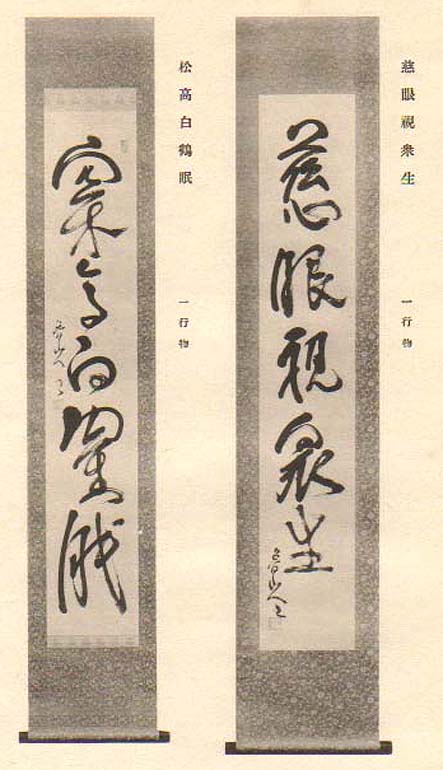 慈眼視衆生
一行物
慈眼視衆生
松高白鶴眠
一行物
松高白鶴眠